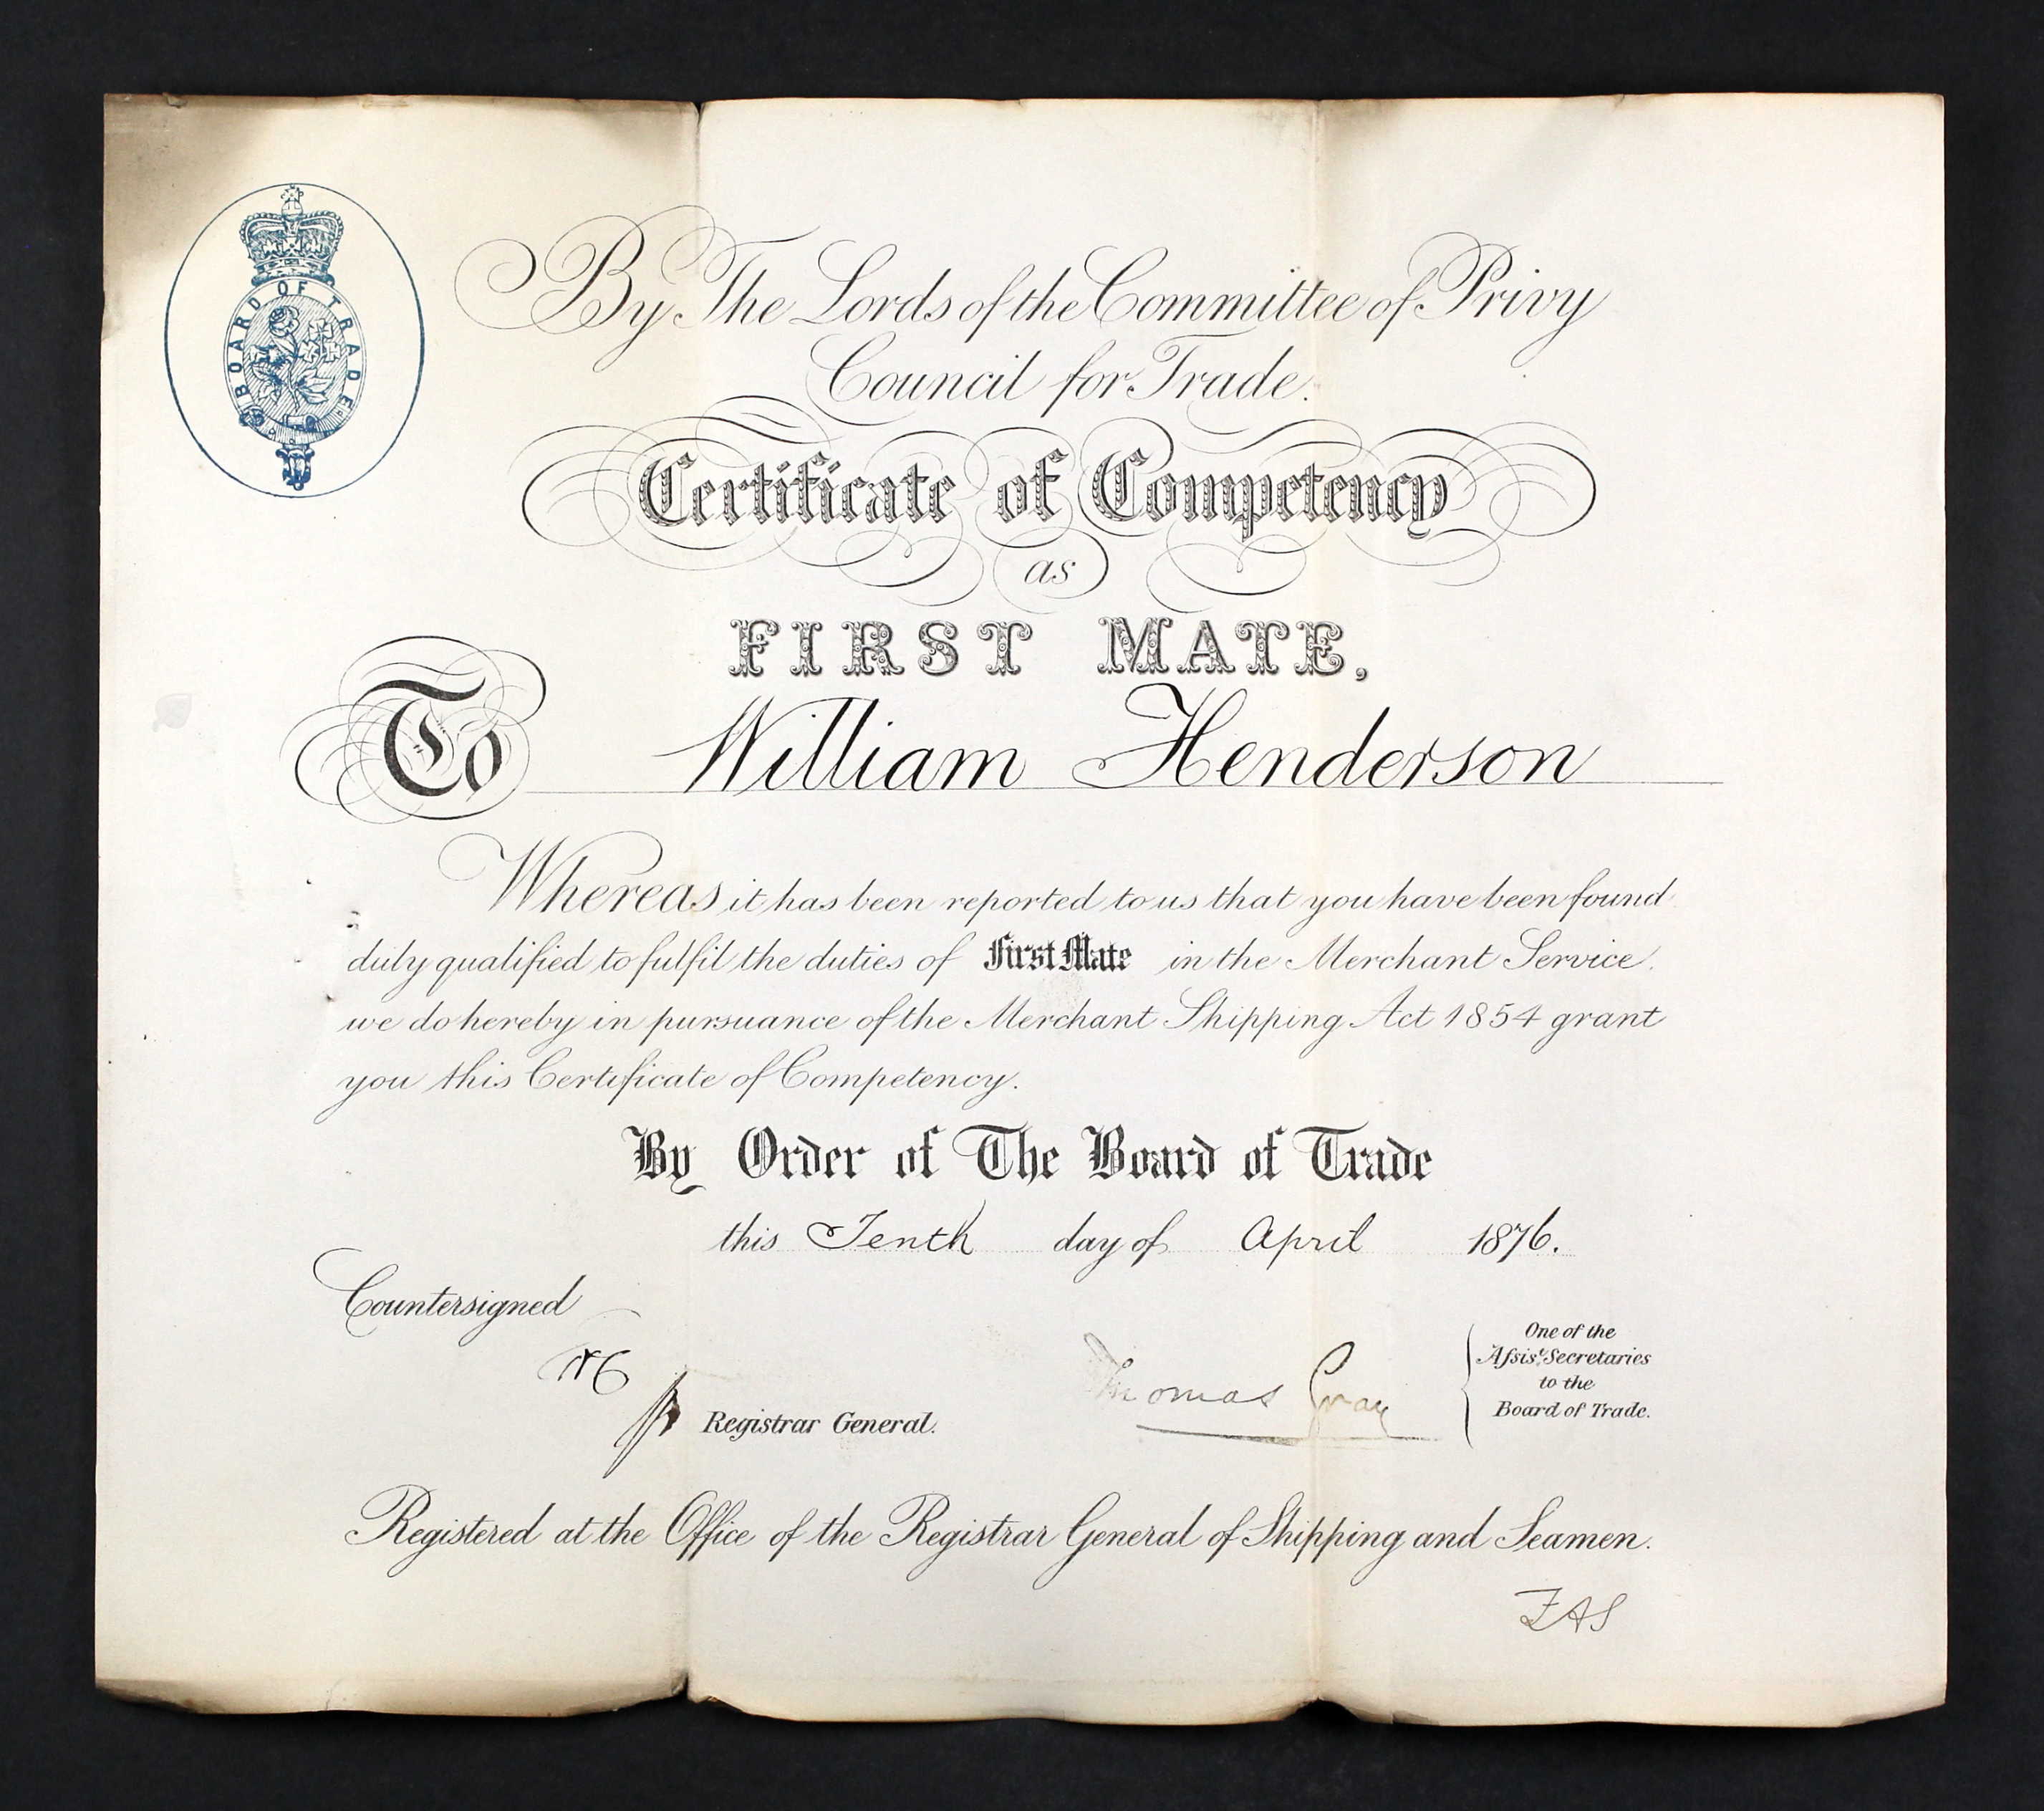 BOARD OF TRADE
By The Lords of the Committee of Privy
Council for Trade.
Certificate of Competency
as
FIRST MATE,
To William Henderson
Whereas it has been reported to us that you have been found
duly qualified to fulfil the duties of First Mate in the Merchant Service.
we do hereby in pursuance of the Merchant Shipping Act 1854 grant
you this Certificate of Competency.
By Order of The Board of Trade
this Tenth day of April 1876.
Countersigned
Registrar General.
Thomas Gray
One of the
Aſsist. Secretaries
to the
Board of Trade.
Registered at the Office of the Registrar General of Shipping and Seamen.